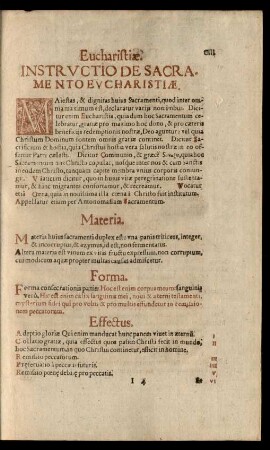 Eucharistiæ.
CIII
INSTRVCTIO DE SACRA-
MENTO EVCHARISTIÆ.
MAiestas, & dignitas huius Sacramenti, quod inter om-
nia maximum est, declaratur varijs nominibus. Dici-
tur enim Eucharistia, quia dum hoc Sacramentum ce-
lebratur, gratiæ pro maximo hoc dono, & pro cæteris
beneficijs redemptionis nostræ, Deo aguntur: vel quia
Christum Dominum fontem omnis gratiæ continet. Dicitur Sa-
crificium & hostia, quia Christus hostia vera salutis nostræ in eo of-
fertur Patri cælesti. Dicitur Communio, & græcè quia hoc
Sacramentum nos Christo copulat, nosque inter nos & cum sanctis
in eodem Christo, tanquam capite membra vnius corporis coniun-
git. Viaticum dicitur, quo in huius vitæ peregrinatione sustenta-
mur, & euntes magnopere confortamur, & recreamur. Vocatur
Cœna, quia in mystica illa cœna à Christo fuit institutum.
Appellatur etiam per Antonomasiam Sacramentum.
Materia.
Materia huius sacramenti duplex est: vna panis triticeus, integer,
& incorruptus, & azymus, id est, non fermentatus.
Altera materia est vinum ex vuæ fructu expressum, non corruptum,
cui modicum aquæ propter multas causas admiscetur.
Forma.
Forma consecrationis panis: Hoc est enim corpus meum: sanguinis
verò, Hic est enim calix sanguinis mei, noui & æterni testamenti,
mysterium fidei qui pro vobis & pro multis effundetur in remissio-
nem peccatorum.
Effectus.
Adeptio gloriæ Qui enim manducat hunc panem viuet in æternū. I
Collatio gratiæ, quia effectus quos passio Christi fecit in mundo, II
hoc Sacramentum, in quo Christus continetur, efficit in homine.
Remissio peccatorum. III
Præseruatio à peccatis futuris.
V
Remissio pœnę debitę pro peccatis. VI
I 4